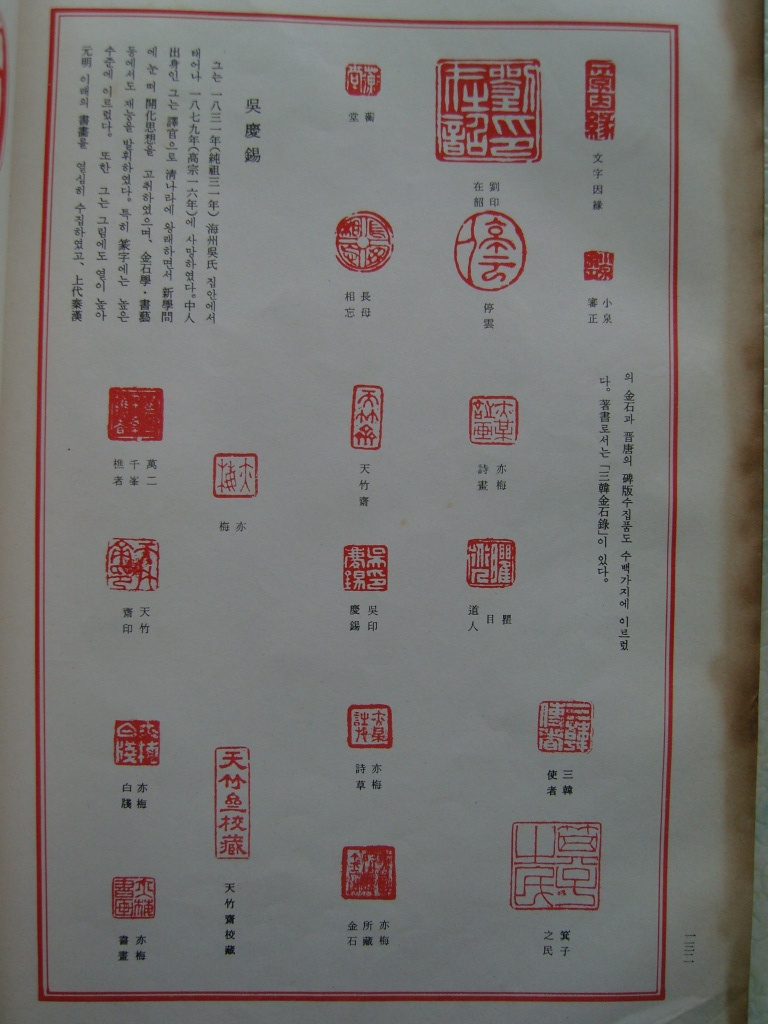 文字因緣
小泉
審正
劉印
在韶
停雲
蘅
堂
長毋
相忘
吳慶錫
그는 一八三一年(純祖三一年) 海州吳氏 집안에서
태어나 一八七九年(高宗一六年)에 사망하였다。中人
出身인 그는 譯官으로 淸나라에 왕래하면서 新學問
에 눈떠 開化思想을 고취하였으며、金石學・書藝
등에서도 재능을 발휘하였다。특히 篆字에는 높은
수준에 이르렀다。또한 그는 그림에도 열이 높아
元明 이래의 書畵를 열심히 수집하였고、上代秦漢
의 金石과 晋唐의 碑版수집품도 수백가지에 이르렀
다。著書로서는「三韓金石錄」이 있다。
亦梅
詩畫
天竹齋
亦
梅
萬二
千峯
樵者
瞿
目
道人
吳印
慶錫
天竹
齋印
三韓
使者
亦梅
詩草
亦梅
白牋
箕子
之民
亦梅
所藏
金石
天竹齋校藏
天竹齋校藏
亦梅
書畫
一三二